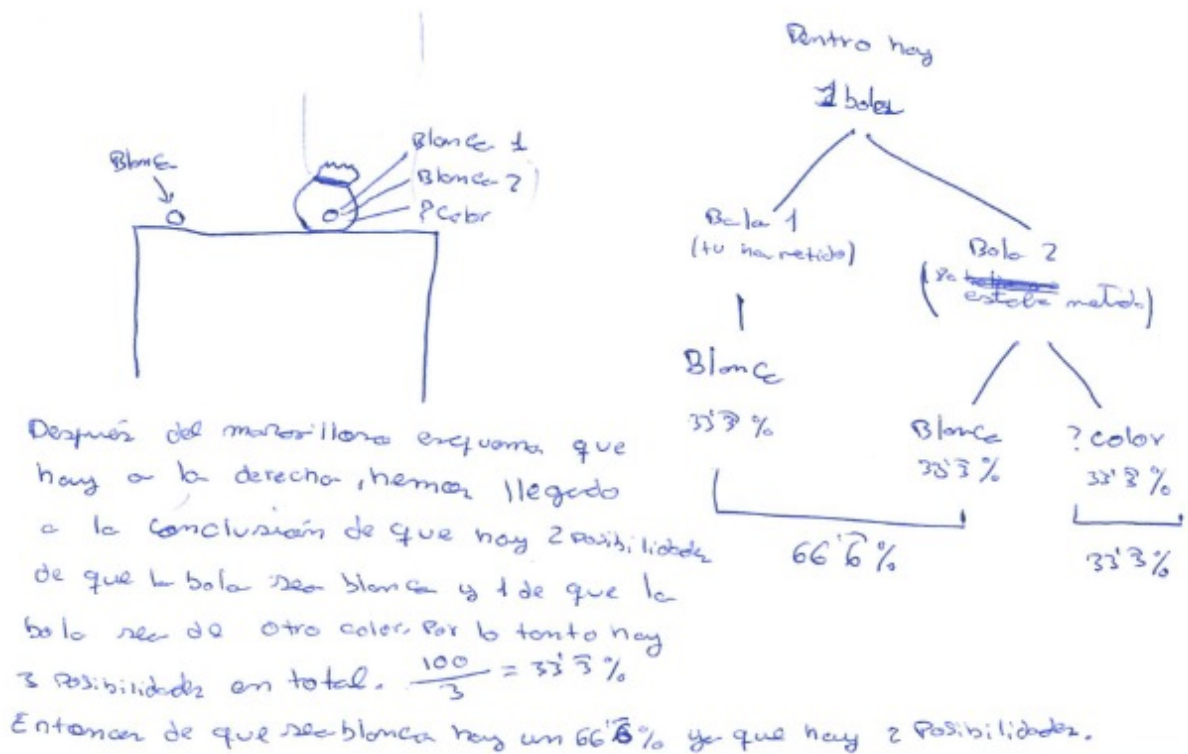 Blanca
Blanca 1
Blanca 2
? Color
Dentro hay
1 bola
Bola 1
(tu has metido)
Bola 2
(ya estaba metida)
Blanca
33'3̑ %
Blanca
33'3̑ %
? color
33'3̑ %
66'6̑ %
33'3̑ %
Después del maravilloso esquema que
hay a la derecha, hemos llegado
a la conclusión de que hay 2 posibilidades
de que la bola sea blanca y 1 de que la
bola sea de otro color. Por lo tanto hay
3 posibilidades en total. 100/3 = 33'3̑ %
Entonces de que sea blanca hay un 66'6̑ % ya que hay 2 posibilidades.